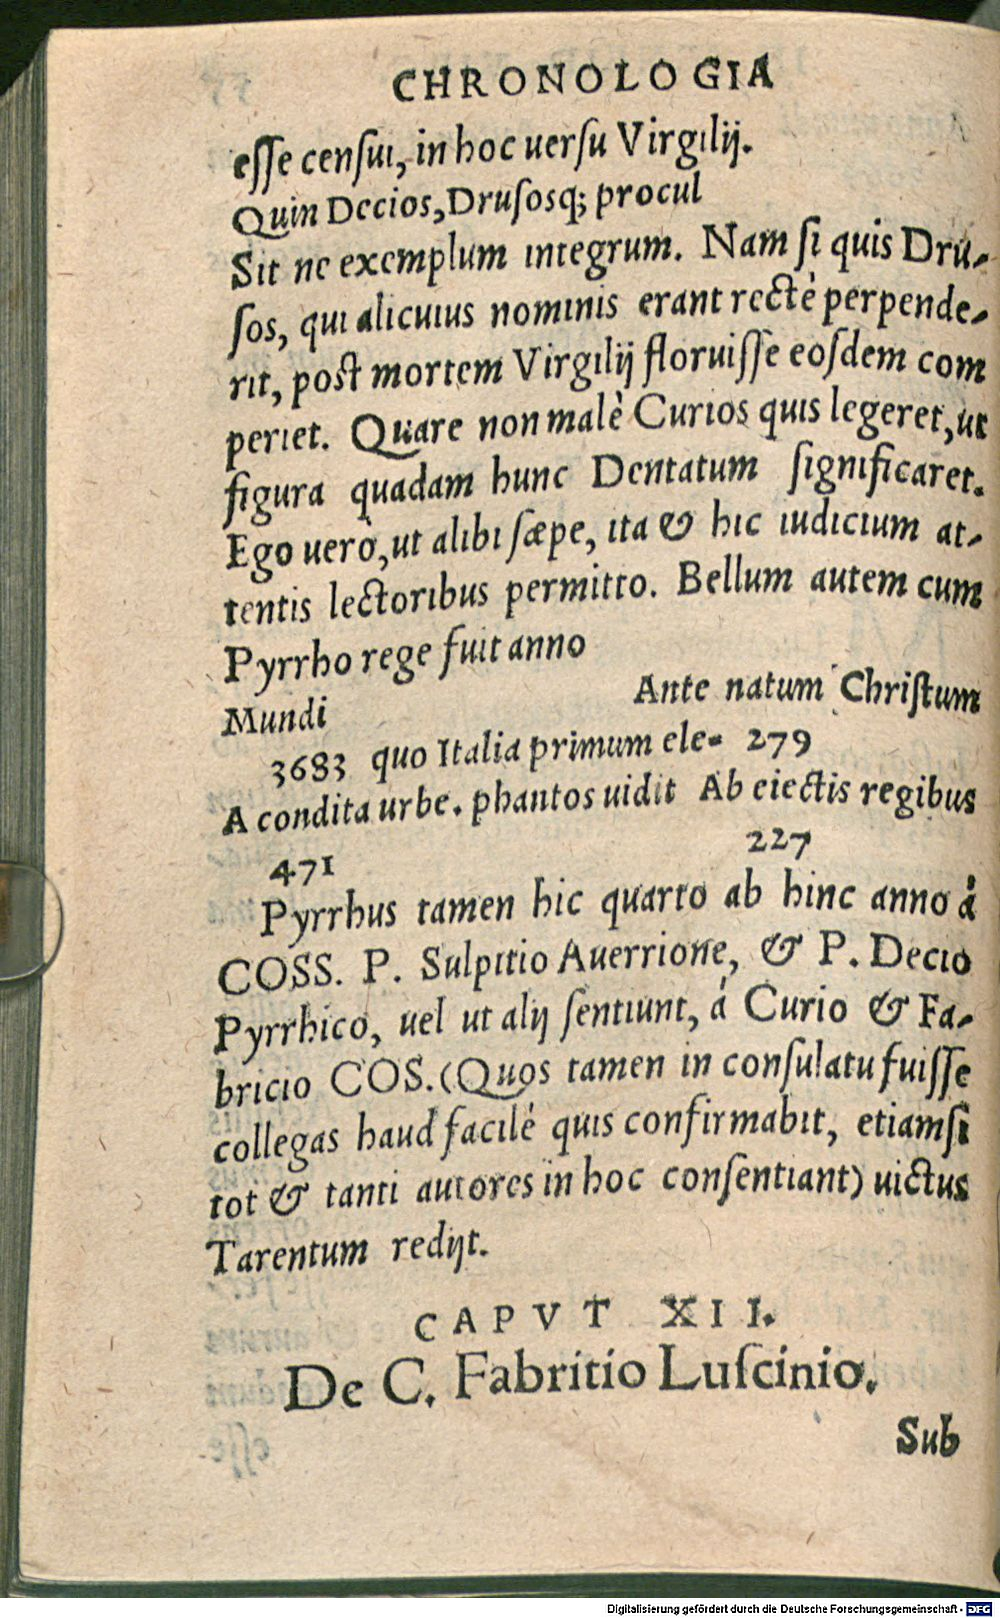 CHRONOLOGIA
eſſe cenſui, in hoc uerſu Virgilij.
Quin Decios, Druſosq; procul
Sit ne exemplum integrum. Nam ſi quis Dru-
ſos, qui alicuius nominis erant rectè perpende-
rit, post mortem Virgilij floruiſſe eoſdem com
periet. Quare non malè Curios quis legeret, ut
figura quadam hunc Dentatum ſignificaret.
Ego uerò, ut alibi ſæpe, ita & hic iudicium at-
tentis lectoribus permitto. Bellum autem cum
Pyrrho rege fuit anno
Mundi Ante natum Chriſtum
3683 quo Italia primum ele- 279
A condita urbe. phantos uidit Ab eiectis regibus
471 227
Pyrrhus tamen hic quarto ab hinc anno à
COSS. P. Sulpitio Auerrione, & P. Decio
Pyrrhico, uel ut alij ſentiunt, á Curio & Fa-
bricio COS. (Quos tamen in conſulatu fuiſſe
collegas haud facilé quis confirmabit, etiamſi
tot & tanti autores in hoc conſentiant) uictus
Tarentum redijt.
CAPVT XII.
De C. Fabritio Luſcinio.
Sub
Digitalisierung gefördert durch die Deutsche Forschungsgemeinschaft - DFG